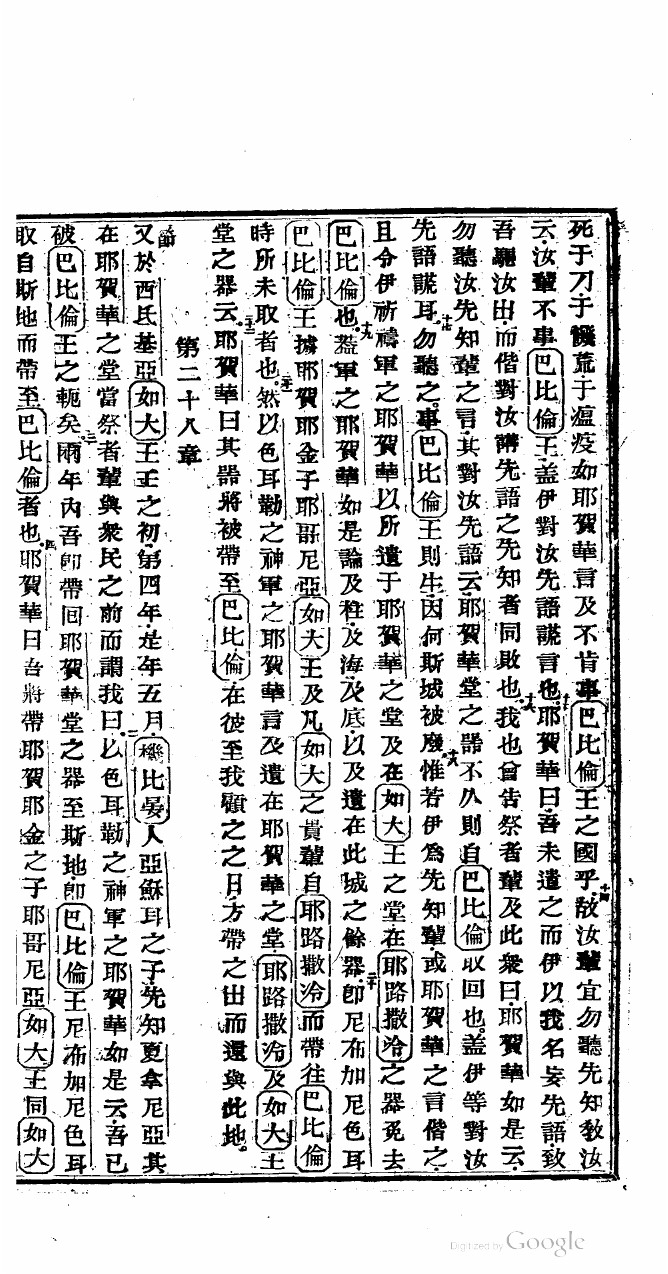 死于刀于饑荒于瘟疫如耶賀華言及不肯事巴比倫王之國乎十四故汝輩宜勿聽先知教汝
云汝輩不事巴比倫王盖伊對汝先語謊言也十五耶賀華曰吾未遣之而伊以我名妄先語致
吾驅汝出而偕對汝講先語之先知者同敗也十六我也曾告祭者輩及此衆曰耶賀華如是云
勿聽汝先知輩之言其對汝先語云耶賀華堂之器不久則自巴比倫取回也盖伊等對汝
先語謊耳十七勿聽之事巴比倫王則生因何斯城被廢十八惟若伊爲先知輩或耶賀華之言偕之
且令伊祈禱軍之耶賀華以所遺于耶賀華之堂及在如大王之堂在耶路撒冷之器免去
巴比倫也十九葢軍之耶賀華如是論及柱及海及底以及遺在此城之餘器二十即尼布加尼色耳
巴比倫王擄耶賀耶金子耶哥尼亞如大王及凡如大之貴輩自耶路撒冷而帶往巴比倫
時所未取者也二一然以色耳勒之神軍之耶賀華言及遺在耶賀華之堂耶路撒冷及如大王
堂之器云二二耶賀華曰其器將被帶至巴比倫在彼至我顧之之日方帶之出而還與此地
第二十八章
一節又於西氐基亞如大王王之初第四年是年五月磯比晏人亞蘇耳之子先知夏拿尼亞其
在耶賀華之堂當祭者輩與衆民之前而謂我曰二以色耳勒之神軍之耶賀華如是云吾已
被巴比倫王之軛矣三兩年內吾卽帶回耶賀華堂之器至斯地卽巴比倫王尼布加尼色耳
取自斯地而帶至巴比倫者也四耶賀華曰吾將帶耶賀耶金之子耶哥尼亞如大王同如大
Digitized by Google